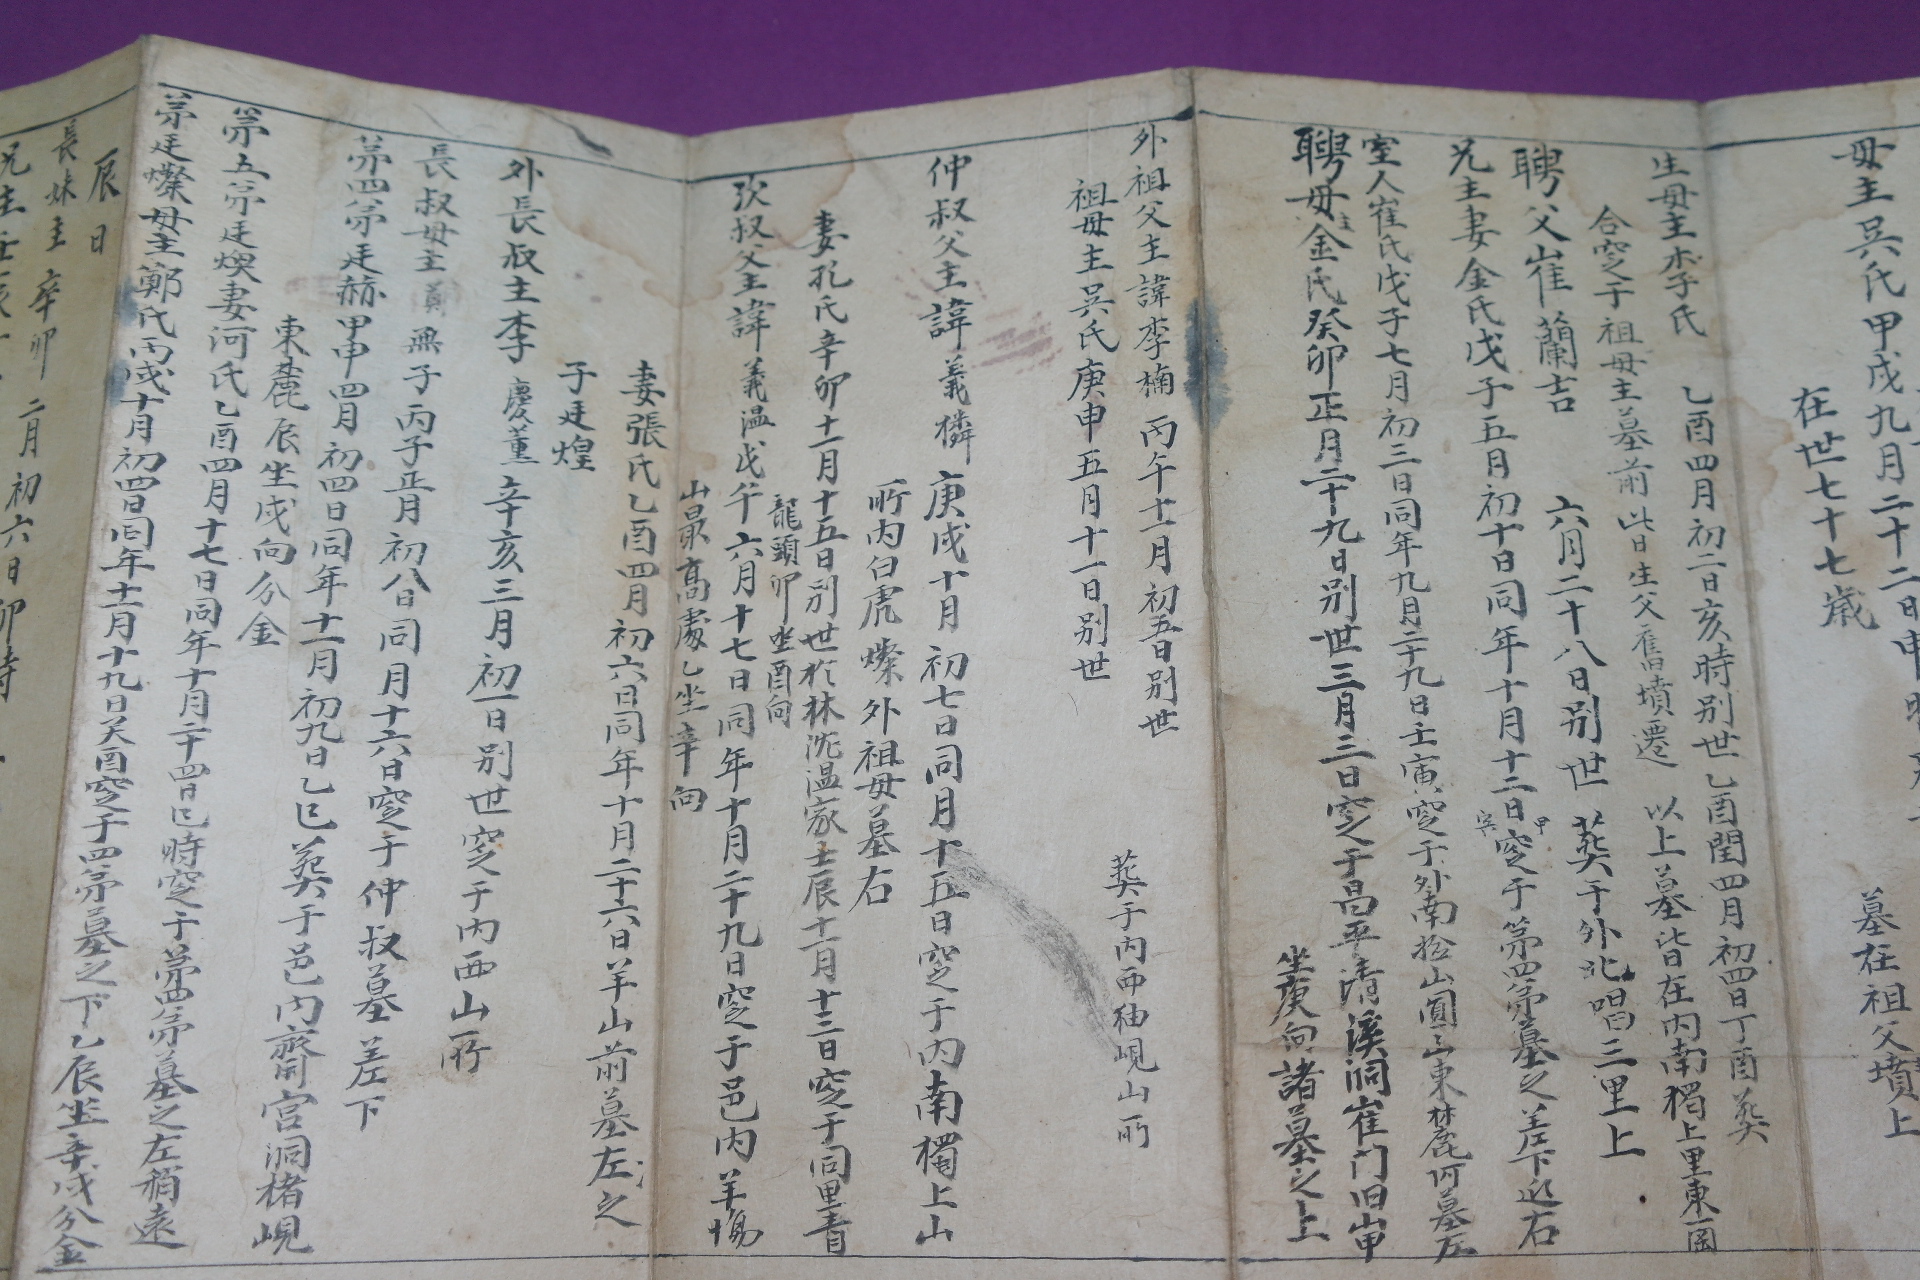 母主吳氏甲戌九月二十二日申時
在世七十七歲
墓在祖父墳上
生母主李氏
乙酉四月初二日亥時別世乙酉閏四月初四日丁酉葬
合窆于祖母主墓前此日生父舊墳遷
以上墓皆在內南獨上里東岡
聘父崔蘭吉
六月二十八日別世
葬于外北唱三里上
兄主妻金氏戊子五月初十日同年十月十二日窆于第四弟墓之差下近右
室人崔氏戊子七月初三日同年九月二十九日壬寅窆于外南松山圓山東麓何墓左
聘母主金氏癸卯正月二十九日別世三月三日窆于昌平清溪洞崔门旧山甲
坐庚向諸墓之上
外祖父主諱李楠丙午十一月初五日別世
祖母主吳氏庚申五月十一日別世
葬于內西秞峴山所
仲叔父主諱義橉庚戌十月初七日同月十五日窆于內南獨上山
所內白虎燦外祖母墓右
妻孔氏辛卯十一月十五日別世於林沈温家士辰十一月十三日窆于同里青
龍頭卯坐酉向
次叔父主諱義温戊午六月十七日同年十月二十九日窆于邑內羊場
山最高處乙坐辛向
妻張氏乙酉四月初六日同年十月二十六日羊山前墓左之
子廷煌
外長叔主李慶薰辛亥三月初一日別世窆于內西山所
長叔母主鄭無子丙子正月初八日同月十六日窆于仲叔墓差下
第四弟廷赫甲申四月初四日同年十一月初九日乙巳葬于邑內齋宮洞楮峴
東麓辰坐戌向分金
第五弟廷煥妻河氏乙酉四月十七日同年十月二十四日巳時窆于第四弟墓之左稍遠
第廷燦母主鄭氏丙戌十月初四日同年十一月十九日癸酉窆于四弟墓之下乙辰坐辛戌分金
辰日
長妹主辛卯二月初六日卯時
兄主壬辰